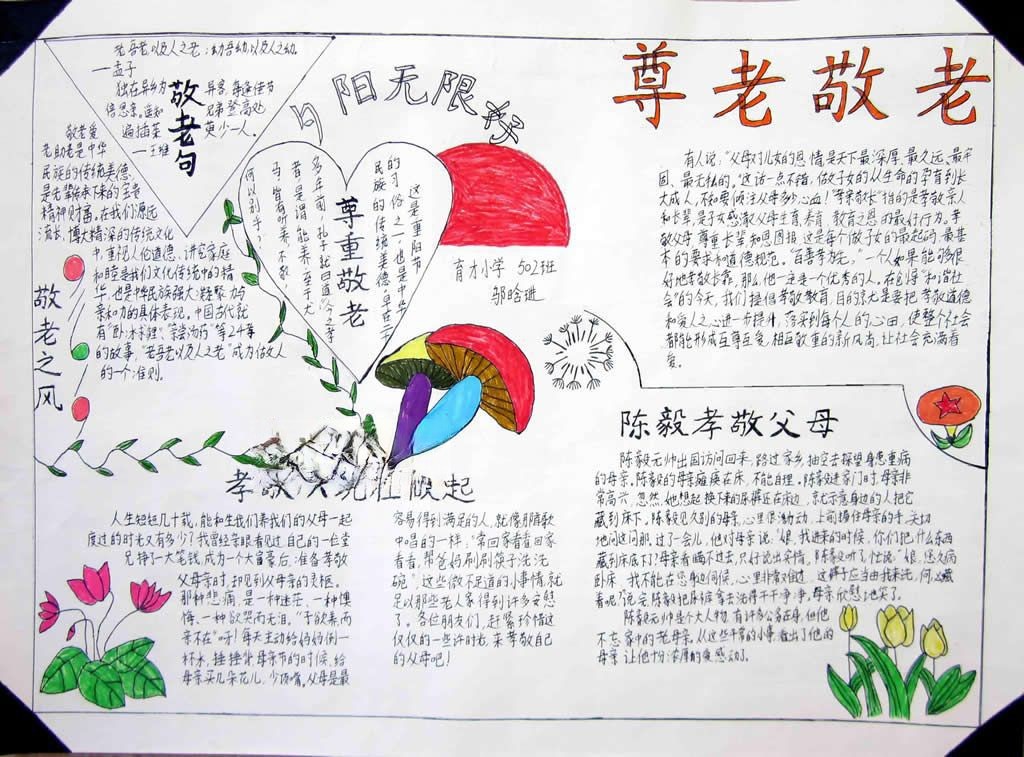 尊老敬老
夕阳无限
老吾老,以及人之老;幼吾幼,以及人之幼。
—孟子
敬老句
独在异乡为异客,每逢佳节
倍思亲。遥知兄弟登高处,
遍插茱萸少一人。
—王维
敬老之风
敬老爱
老助老是中华
民族的传统美德,
是先辈传承下来的宝贵
精神财富。在我们源远
流长,博大精深的传统文化
中,重视人伦道德、讲究家庭
和睦是我们文化传统中的精
华,也是中华民族强大凝聚力与
亲和力的具体表现。中国古代就
有"卧冰求鲤"、"亲尝汤药"等24孝
的故事,"老吾老以及人之老"成为做人
的一个准则。
尊重敬老
这是重阳节
的习俗之一,也是中华
民族的传统美德。早在二千
多年前,孔子就曰道:"今之孝
者,是谓能养。至于犬
马,皆有所养;不敬,
何以别乎?"
育才小学 502班
邬晗进
有人说:"父母对儿女的恩情是天下最深厚、最久远、最牢
固、最无私的。"这话一点不错,做子女的从生命的孕育到长
大成人,不知要倾注父母多少心血!"孝亲敬长"指的是孝敬亲人
和长辈,是子女感激父母生育、养育、教育之恩的最好行为。孝
敬父母,尊重长辈和恩图报,这是每个做子女的最起码、最基
本的要求和道德规范。"百善孝为先。"一个人如果能够很
好地孝敬长辈,那么他一定是一个优秀的人。在创导"和谐社
会"的今天,我们提倡孝敬教育,目的就是要把孝敬道德
和爱人之心进一步提升,落实到每个人的心田,使整个社会
都能形成互尊互爱,相互敬重的新风尚,让社会充满着
爱。
陈毅孝敬父母
陈毅元帅出国访问回来,路过家乡,抽空去探望身患重病
的母亲。陈毅的母亲瘫痪在床,不能自理。陈毅进家门时,母亲非
常高兴,忽然她想起换下来的尿裤还在床边,就示意身边的人把它
藏到床下,陈毅见久别的母亲,心里很激动,上前握住母亲的手,关切
地问这问那。过了一会儿,他对母亲说:"娘,我进来的时候,你们把什么东西
藏到床底下了?母亲看瞒不过去,只好说出实情。陈毅听了,忙说:"娘,您久病
卧床,我不能在您身边伺候,心里非常难过,这裤子应当由我来洗,何必藏
着呢?"说完陈毅把尿裤拿去洗得干干净净,母亲欣慰地笑了。
陈毅元帅是个大人物,有许多公务在身,但他
不忘家中的老母亲。从这些平常的小事,看出了他的
母亲,让他十分浓厚的爱感动了。
孝敬起
人生短短几十载,能和生我们养我们的父母一起
度过的时光又有多少?我曾经亲眼看见过自己的一位堂
兄挣了一大笔钱,成为一个大富豪后,准备孝敬
父母亲时,却见到父母亲的灵柩。
那种悲痛,是一种迷茫,一种懊
悔,一种欲哭而无泪。"子欲养而
亲不在"呀!每天主动给妈妈倒一
杯水,捶捶背,母亲节的时候,给
母亲买几朵花儿,少顶嘴。父母是最
容易得到满足的人,就像那首歌
中唱的一样,"常回家看看回家
看看,帮爸妈刷刷筷子洗洗
碗",这些微不足道的小事情,就
足以那些老人家得到许多安慰
了。各位朋友们,赶紧珍惜这
仅仅的一些许时光,来孝敬自己
的父母吧!